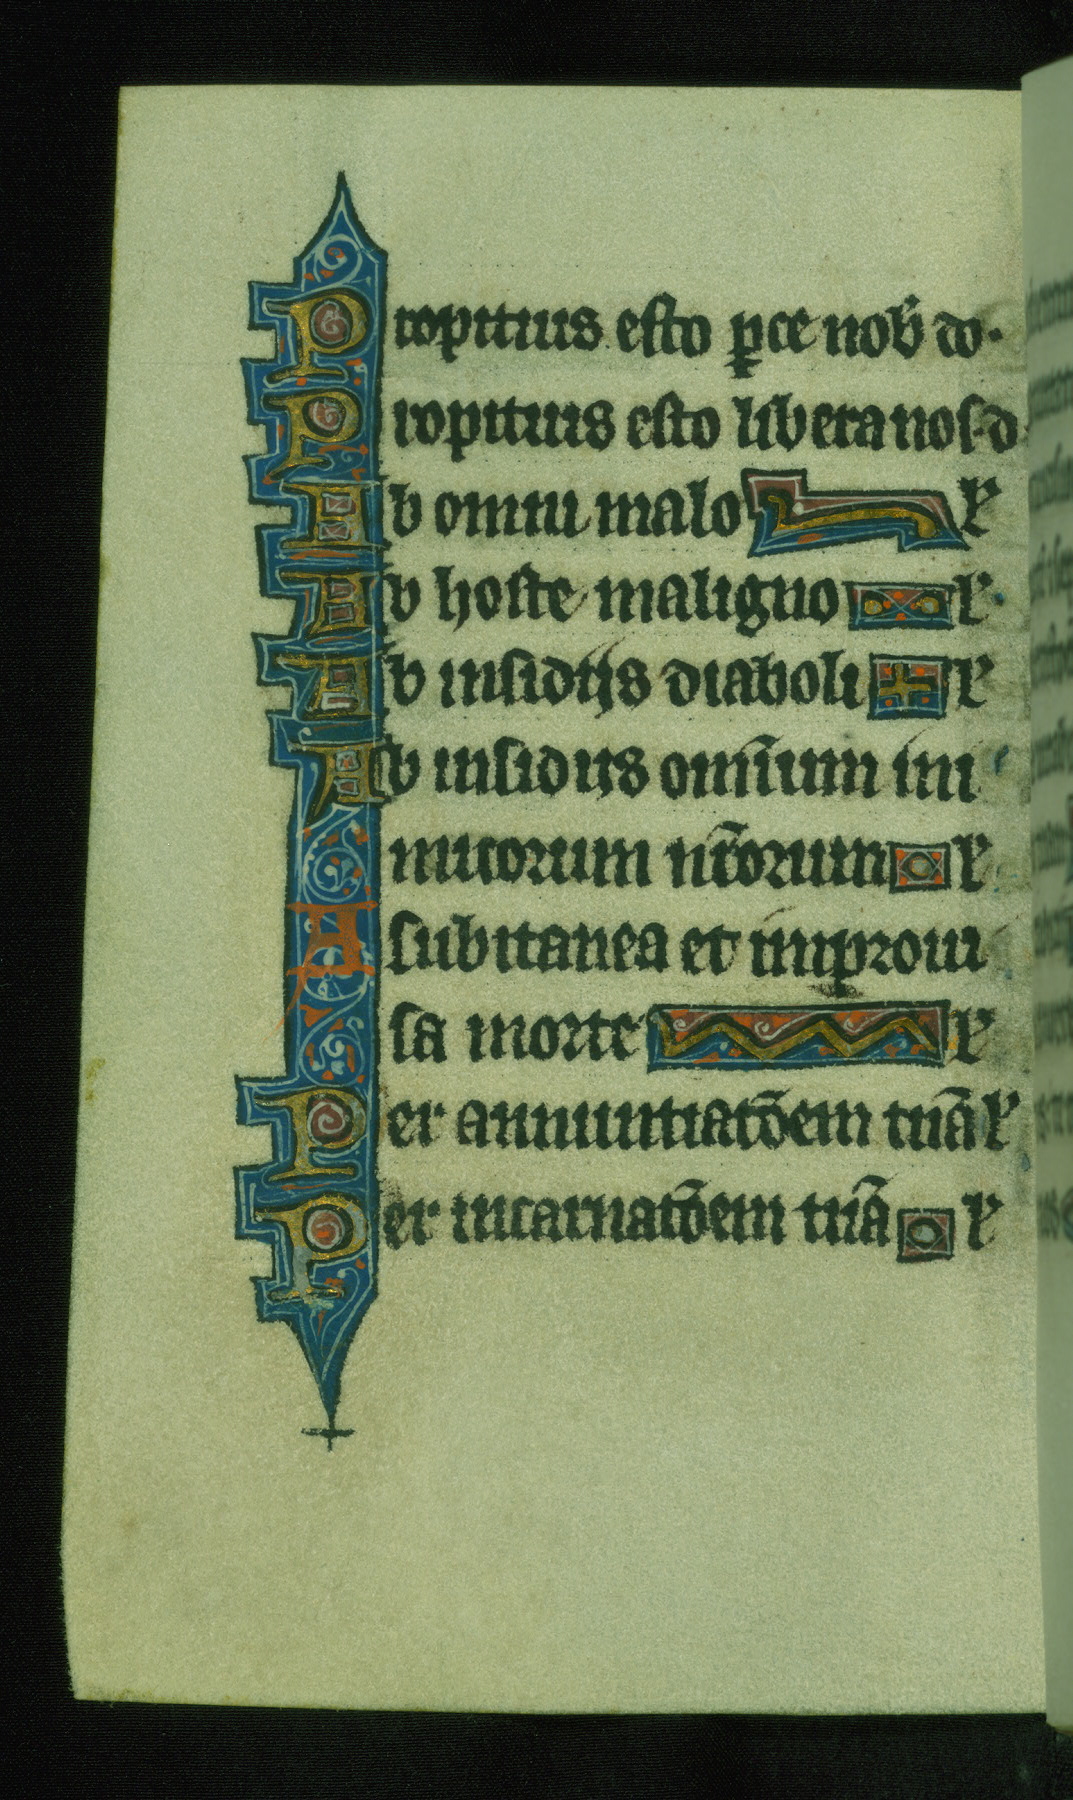 Propitius esto ꝑce nob̾ do·
Propitius esto libera nos·d
Ab omni malo ꝶ
Ab hoste maligno ꝶ
Ab insidiis diaboli ꝶ
Ab insidiis omnīum ini
micorum nr̄orum ꝶ
A subitanea et improui
sa morte ꝶ
Per annuntiatōem tuā ꝶ
Per incarnatōem tuā ꝶ